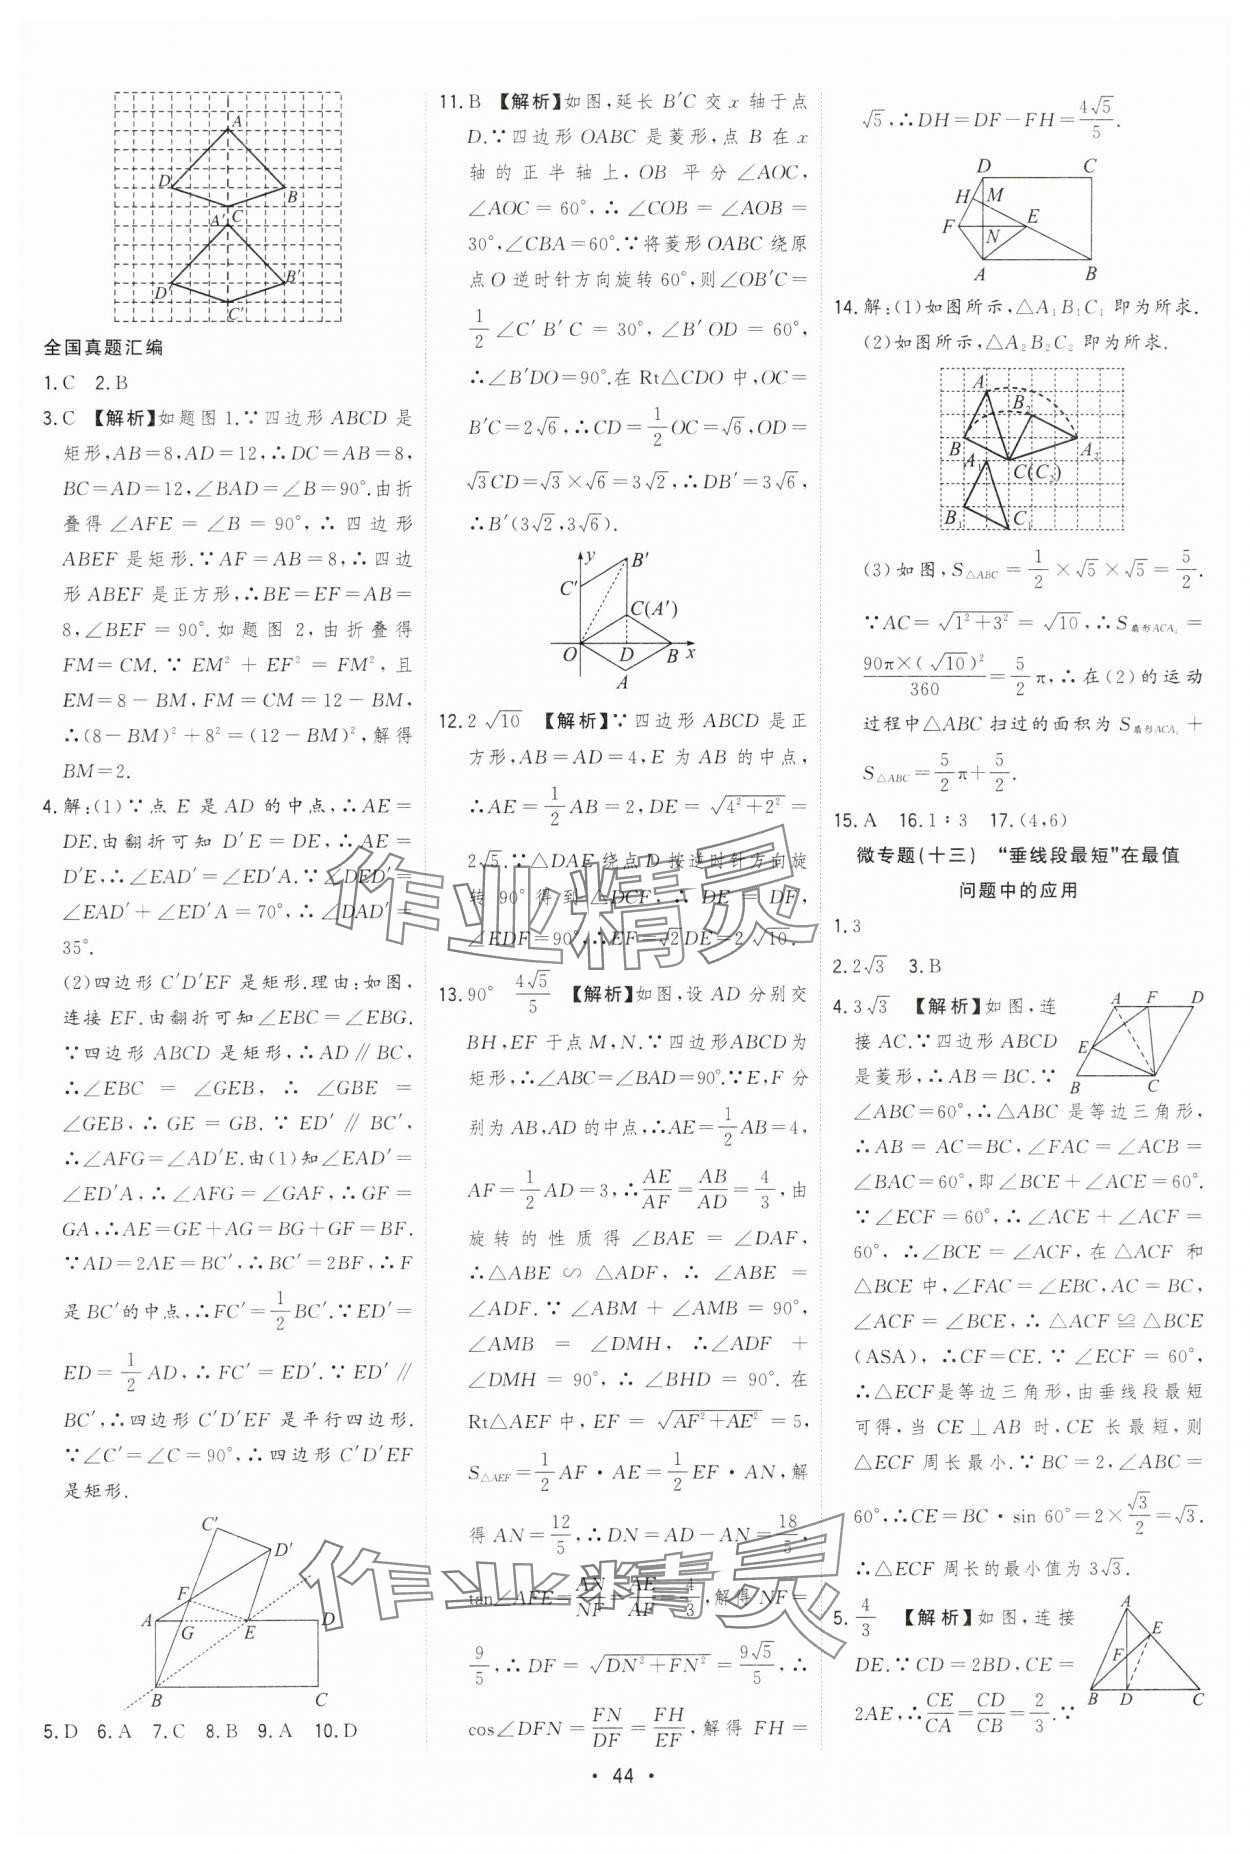 A
D
B
C
A′
D′
B′
C′
全国真题汇编
1.C 2.B
3.C 【解析】如题图1.∵四边形ABCD是
矩形,AB=8,AD=12,∴DC=AB=8,
BC=AD=12,∠BAD=∠B=90°.由折
叠得∠AFE=∠B=90°,∴四边形
ABEF是矩形.∵AF=AB=8,∴四边
形ABEF是正方形,∴BE=EF=AB=
8,∠BEF=90°.如题图2,由折叠得
FM=CM.∵EM²+EF²=FM²,且
EM=8-BM,FM=CM=12-BM,
∴(8-BM)²+8²=(12-BM)²,解得
BM=2.
4.解:(1)∵点E是AD的中点,∴AE=
DE.由翻折可知D′E=DE,∴AE=
D′E,∴∠EAD′=∠ED′A.∵∠DED′=
∠EAD′+∠ED′A=70°,∴∠DAD′=
35°.
(2)四边形C′D′EF是矩形.理由:如图,
连接EF.由翻折可知∠EBC=∠EBG.
∵四边形ABCD是矩形,∴AD∥BC,
∴∠EBC=∠GEB,∴∠GBE=
∠GEB,∴GE=GB.∵ED′∥BC′,
∴∠AFG=∠AD′E.由(1)知∠EAD′=
∠ED′A,∴∠AFG=∠GAF,∴GF=
GA,∴AE=GE+AG=BG+GF=BF.
∵AD=2AE=BC′,∴BC′=2BF,∴F
是BC′的中点,∴FC′=1/2BC′.∵ED′=
ED=1/2AD,∴FC′=ED′.∵ED′∥
BC′,∴四边形C′D′EF是平行四边形.
∵∠C′=∠C=90°,∴四边形C′D′EF
是矩形.
C′
D′
F
A G E D
B C
5.D 6.A 7.C 8.B 9.A 10.D
11.B 【解析】如图,延长B′C交x轴于点
D.∵四边形OABC是菱形,点B在x
轴的正半轴上,OB平分∠AOC,
∠AOC=60°,∴∠COB=∠AOB=
30°,∠CBA=60°.∵将菱形OABC绕原
点O逆时针方向旋转60°,则∠OB′C=
1/2∠C′B′C=30°,∠B′OD=60°,
∴∠B′DO=90°.在Rt△CDO中,OC=
B′C=2√6,∴CD=1/2OC=√6,OD=
√3CD=√3×√6=3√2,∴DB′=3√6,
∴B′(3√2,3√6).
y B′
C′
C(A′)
O D B x
A
12.2√10 【解析】∵四边形ABCD是正
方形,AB=AD=4,E为AB的中点,
∴AE=1/2AB=2,DE=√(4²+2²)=
2√5.∵△DAE绕点D按逆时针方向旋
转90°得到△DCF,∴DE=DF,
∠EDF=90°,∴EF=√2DE=2√10.
13.90° 4√5/5 【解析】如图,设AD分别交
BH,EF于点M,N.∵四边形ABCD为
矩形,∴∠ABC=∠BAD=90°.∵E,F分
别为AB,AD的中点,∴AE=1/2AB=4,
AF=1/2AD=3,∴AE/AF=AB/AD=4/3,由
旋转的性质得∠BAE=∠DAF,
∴△ABE∽△ADF,∴∠ABE=
∠ADF.∵∠ABM+∠AMB=90°,
∠AMB=∠DMH,∴∠ADF+
∠DMH=90°,∴∠BHD=90°.在
Rt△AEF中,EF=√(AF²+AE²)=5,
S△AEF=1/2AF·AE=1/2EF·AN,解
得AN=12/5,∴DN=AD-AN=18/5,
tan∠AFE=AN/NF=AE/AF=4/3,解得NF=
9/5,∴DF=√(DN²+FN²)=9√5/5,∴
cos∠DFN=FN/DF=FH/EF,解得FH=
√5,∴DH=DF-FH=4√5/5.
D C
H M
F N E
A B
14.解:(1)如图所示,△A₁B₁C₁即为所求.
(2)如图所示,△A₂B₂C₂即为所求.
A
B₂
B A₁ C(C₂) A₂
B₁ C₁
(3)如图,S△ABC=1/2×√5×√5=5/2.
∵AC=√(1²+3²)=√10,∴S扇形ACA₂=
90π×(√10)²/360=5/2π,∴在(2)的运动
过程中△ABC扫过的面积为S扇形ACA₂+
S△ABC=5/2π+5/2.
15.A 16.1∶3 17.(4,6)
微专题(十三) “垂线段最短”在最值
问题中的应用
1.3
2.2√3 3.B
4.3√3 【解析】如图,连
接AC.∵四边形ABCD
是菱形,∴AB=BC.∵
A F D
E
B C
∠ABC=60°,∴△ABC是等边三角形,
∴AB=AC=BC,∠FAC=∠ACB=
∠BAC=60°,即∠BCE+∠ACE=60°.
∵∠ECF=60°,∴∠ACE+∠ACF=
60°,∴∠BCE=∠ACF,在△ACF和
△BCE中,∠FAC=∠EBC,AC=BC,
∠ACF=∠BCE,∴△ACF≌△BCE
(ASA),∴CF=CE.∵∠ECF=60°,
∴△ECF是等边三角形,由垂线段最短
可得,当CE⊥AB时,CE长最短,则
△ECF周长最小.∵BC=2,∠ABC=
60°,∴CE=BC·sin 60°=2×√3/2=√3.
∴△ECF周长的最小值为3√3.
5.4/3 【解析】如图,连接
DE.∵CD=2BD,CE=
2AE,∴CE/CA=CD/CB=2/3.∵
A
E
F
B D C
作业精灵
作业精灵
·44·